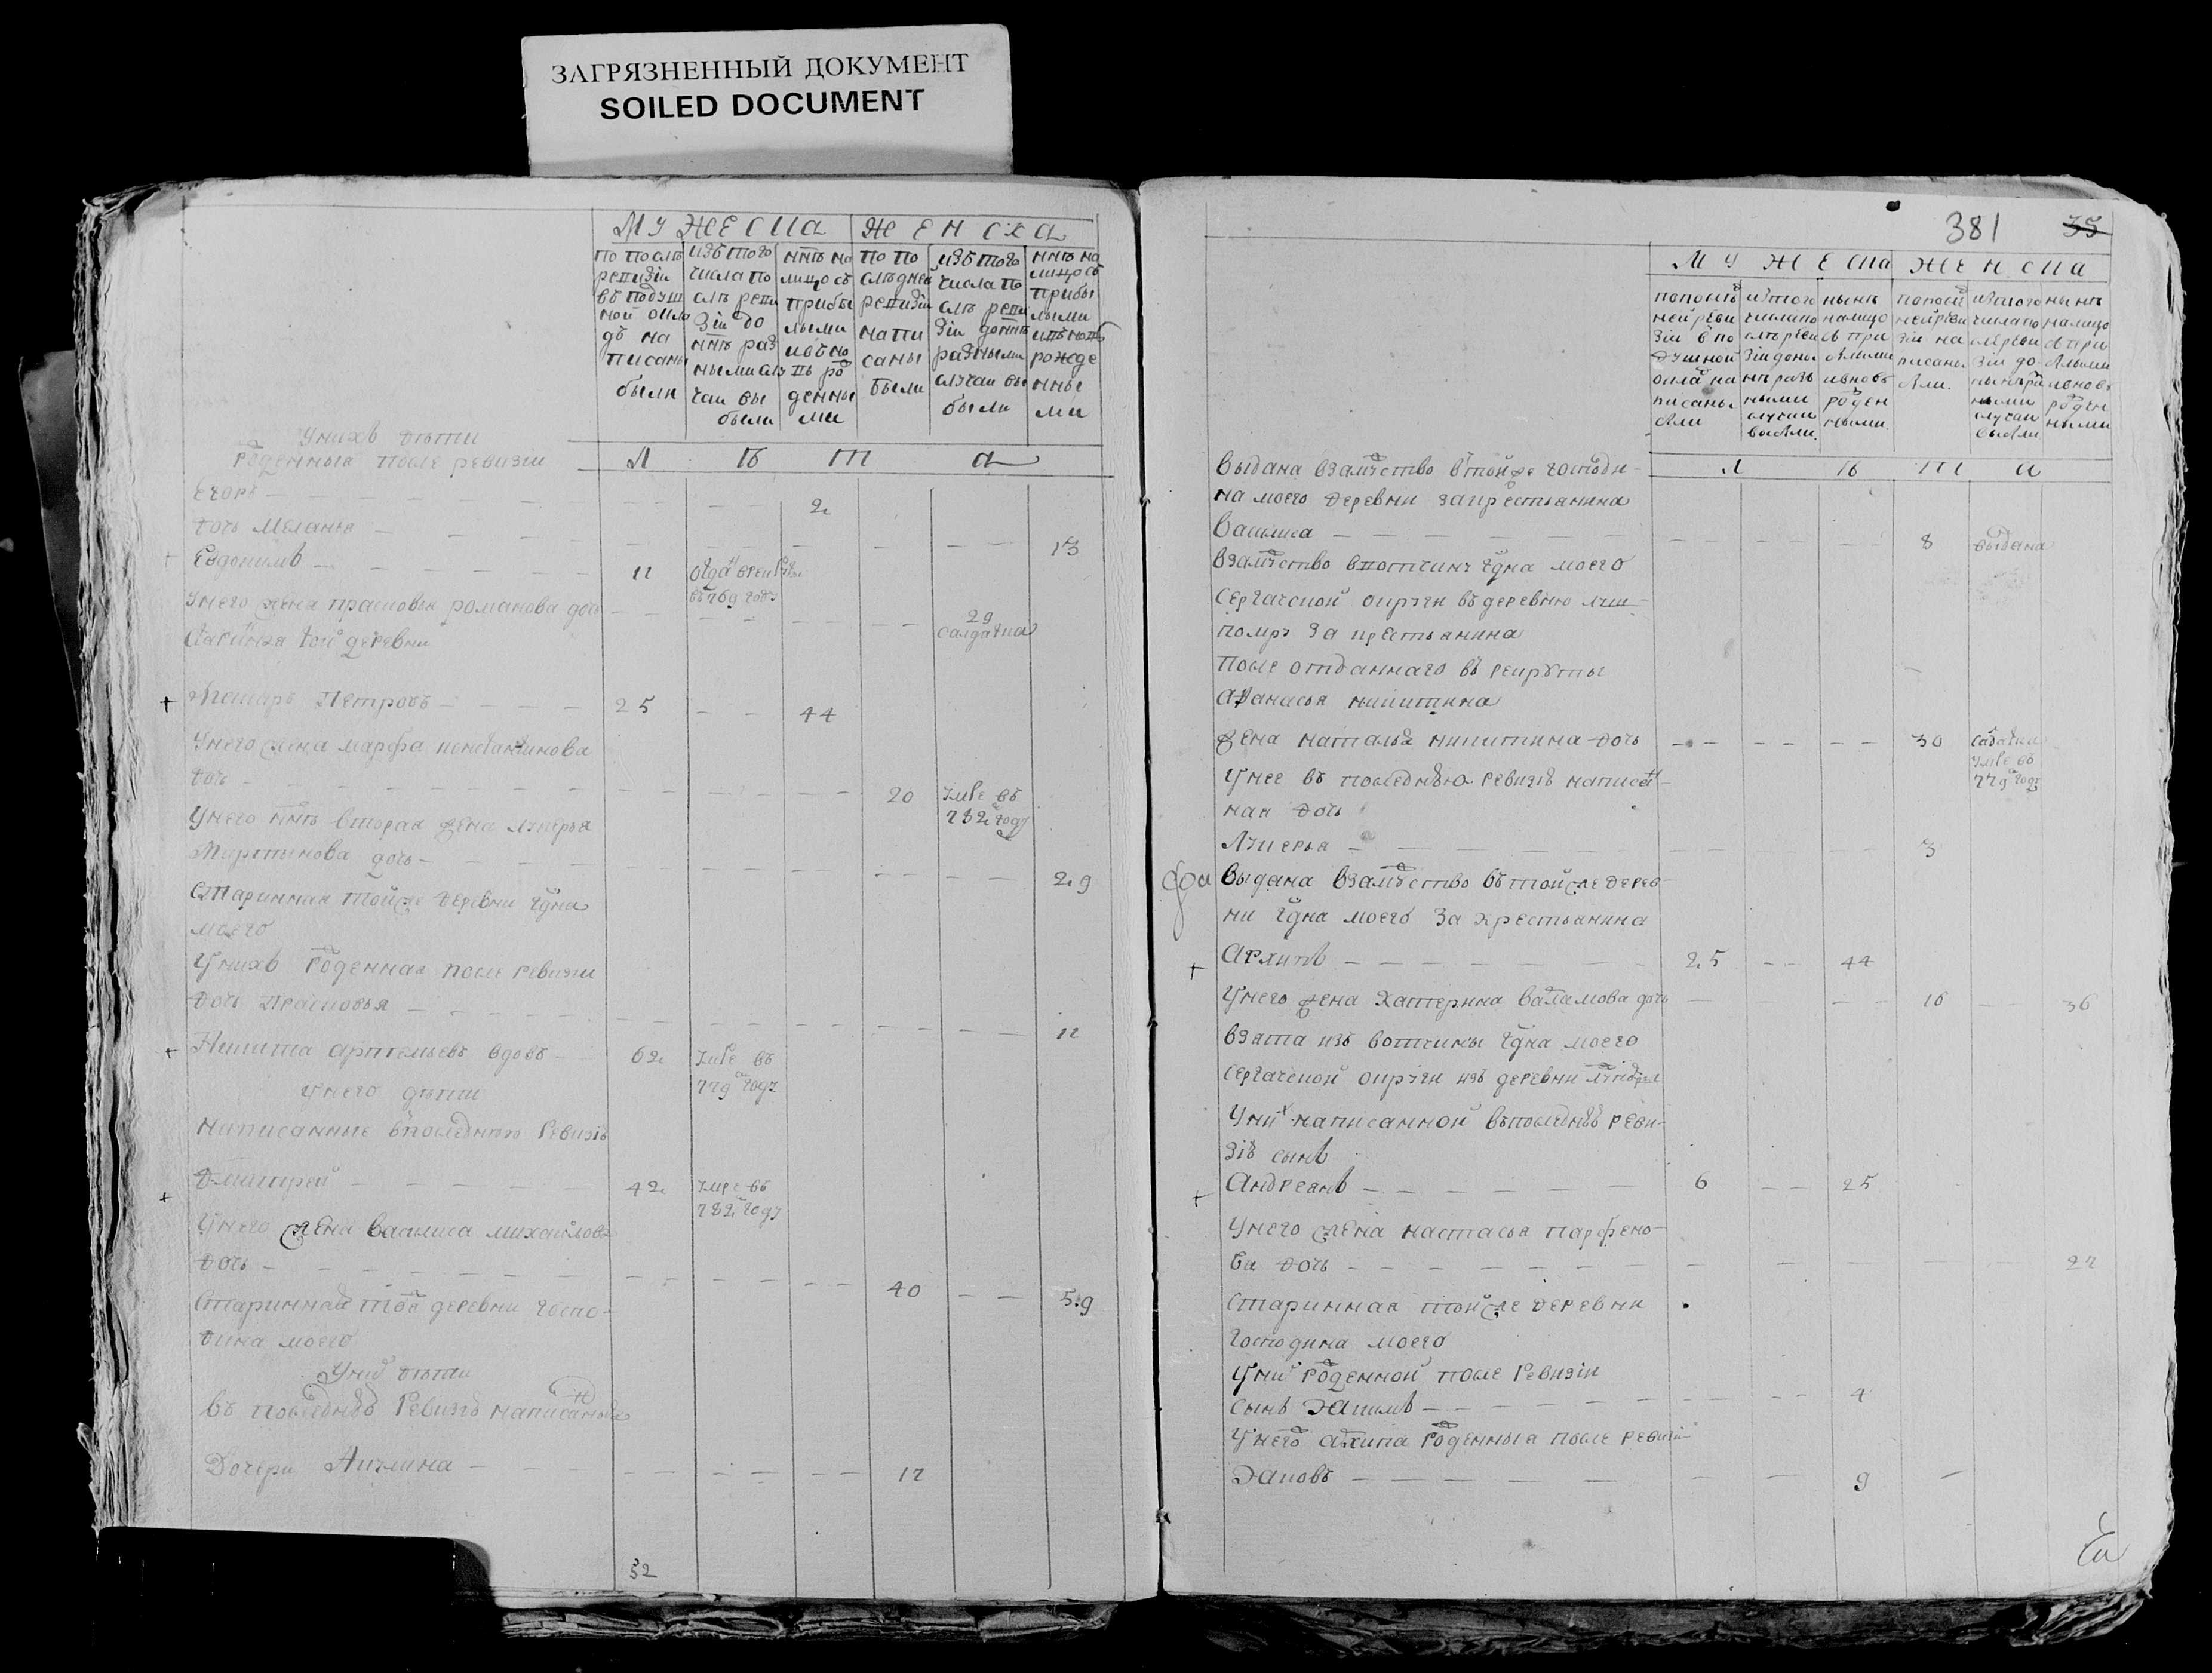 ЗАГРЯЗНЕННЫЙ ДОКУМЕНТ
SOILED DOCUMENT
МУЖЕСКА ЖЕНСКА
по послѣ ревизіи въ подушной окладъ написаны были
изъ того числа по слѣ ревизіи до ннѣ разными случаи выбыли
ннѣ на лицо съ прибылыми и вновь рожденными
по последней ревизіи написаны были
изъ того числа по слѣ ревизіи до ннѣ разными случаи выбыли
ннѣ на лицо съ прибылыми рожденными
у нихъ дѣти
рожденныя после ревизіи
Л Ѣ Т А
Егоръ 2
дочь Меланья 13
Евдокимъ 11
въ 769 году
у него жена прасковья романова дочь 29
салдатка
той деревни
Петровъ 25 44
У него жена марфа константинова
дочь 20 умре въ
782 году
У него ннѣ вторая жена лукерья
Мартынова дочь 29
старинная той же деревни гдна
моего
У нихъ рожденная после ревизіи
дочь Прасковья 11
Никита артемьевъ вдовъ 62 умре въ
779 году
у него дѣти
написанные в последнюю ревизію
Дмитрей 42 умре въ
782 году
У него жена василиса михайлова
дочь 40 59
Старинная той деревни госпо-
дина моего
У них дѣти
въ последнюю ревизію написаные
Дочери Акулина 17
32
381 35
МУЖЕСКА ЖЕНСКА
по последней ревизіи в подушной оклад написаны были
ис того числа по слѣ ревизіи до ннѣ разными случаи выбыли
нынѣ на лицо с прибылыми и вновь рожденными
по последней ревизіи написаны были
ис того числа по слѣ ревизіи до нынѣ разными случаи выбыли
нынѣ на лицо с прибылыми и вновь рожденными
Л Ѣ Т А
выдана в замужство в той же господи-
на моего деревни за крестьянина
Василиса 8 выдана
в замужство в вотчину гдна моего
Сергачской округи въ деревню
за крестьянина
после отданнаго въ рекруты
афанасья никитина
жена наталья никитина дочь 30 салдатка
умре въ
779 году
У нее въ последнюю ревизію написан-
ная дочь
Лукерья 3
выдана в замужство в той же дерев-
ни гдна моего за крестьянина
Архипъ 25 44
У него жена катерина варламова дочь 16 36
взята изъ вотчины гдна моего
Сергачской округи изъ деревни
У них написанной въ последнюю реви-
зію сынъ
Андреянъ 6 25
У него жена настасья парфено-
ва дочь 27
старинная той же деревни
господина моего
У них рожденной после ревизіи
сынъ 4
У него архипа рожденныя после ревизіи
9